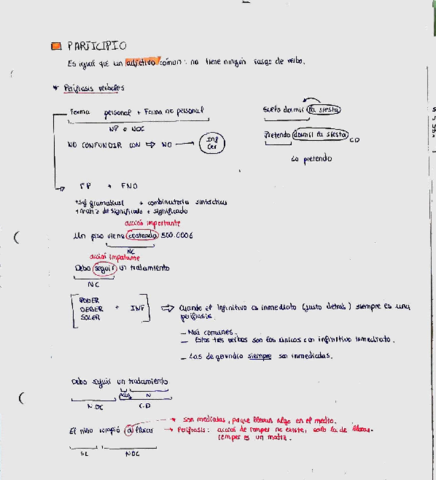 PARTICIPIO
Es igual que un adjetivo común: no tiene ningún rasgo de verbo.
* Perífrasis verbales
Forma personal + Forma no personal
NP o NDC
NO CONFUNDIR CON ⇒ NO — Inf Ger
Suelo dormir la siesta
Pretendo dormir la siesta CD
Lo pretendo
FP + FNO
+ Inf gramatical + combinatoria sintáctica
+ matiz de significado + significado
acción importante
Un piso viene costando 500.000€
NC
acción importante
Debo seguir un tratamiento
NC
PODER
DEBER + INF
SOLER
⇒ Cuando el infinitivo es inmediato (justo detrás) siempre es una perífrasis.
- Más comunes.
- Estos tres verbos son los únicos con infinitivo inmediato.
- Las de gerundio siempre son inmediatas.
Debo seguir un tratamiento
N
NDC C.D
El niño rompió a llorar
→ son mediatas, porque llevan algo en el medio.
→ Perífrasis: acción de romper no existe, solo la de llorar.
romper es un matiz.
NDC